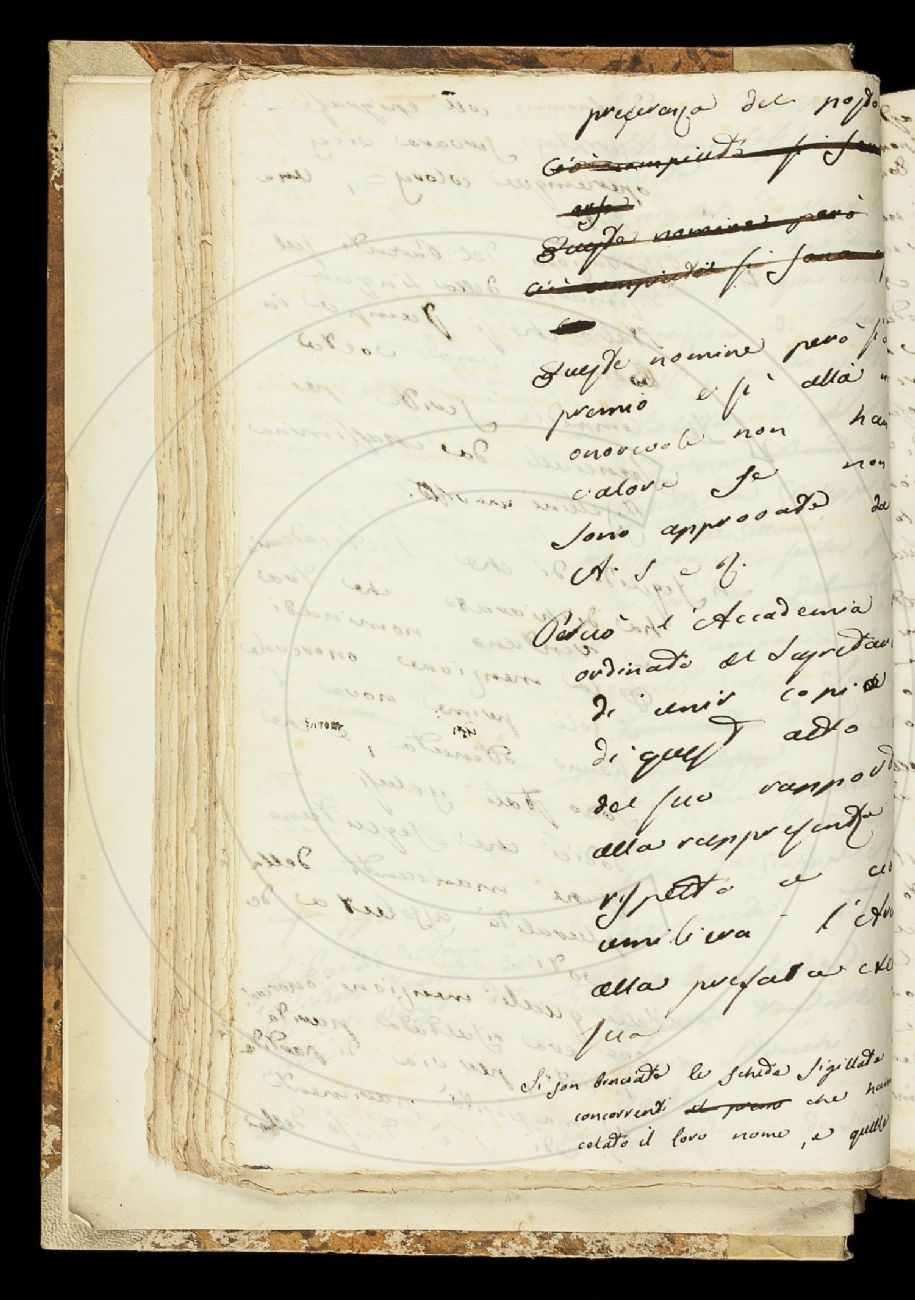 preferenza del posto
Ciò compiuto si sono
esse
Queste nomine però
ciò compiuto si sono
Queste nomine però si
premio e sì alla
onorevole non han
valore se non
sono approvate da
A. S. e R.
Perciò l'Accademia
ordinato al Segretar
di unir copia
di quest atto
del suo rapporto
alla rappresentza
rispetto
umilierà l'Ac
alla prefata
sua
Si son bruciate le schede sigillate
concorrenti che han
celato il loro nome, e quelle